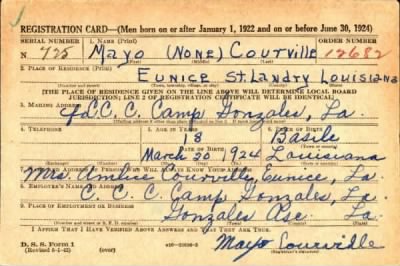 REGISTRATION CARD—(Men born on or after January 1, 1922 and on or before June 30, 1924)
SERIAL NUMBER 1. NAME (Print) ORDER NUMBER
N 725 Mayo (None) Courville 12682
(First) (Middle) (Last)
2. PLACE OF RESIDENCE (Print)
Eunice St. Landry Louisiana
(Number and street) (Town, township, village, or city) (County) (State)
[THE PLACE OF RESIDENCE GIVEN ON THE LINE ABOVE WILL DETERMINE LOCAL BOARD
JURISDICTION; LINE 2 OF REGISTRATION CERTIFICATE WILL BE IDENTICAL]
3. MAILING ADDRESS
C. C. Camp Gonzales, La.
4. TELEPHONE 5. AGE IN YEARS 6. PLACE OF BIRTH
18 Basile
DATE OF BIRTH
March 20 1924 Louisiana
7. NAME AND ADDRESS OF PERSON WHO WILL ALWAYS KNOW YOUR ADDRESS
Mrs. Courville, Eunice, La.
8. EMPLOYER'S NAME AND ADDRESS
C. C. C. Camp Gonzales, La.
9. PLACE OF EMPLOYMENT OR BUSINESS
Gonzales Asc. La.
(Number and street or R. F. D. number) (Town) (County) (State)
I AFFIRM THAT I HAVE VERIFIED ABOVE ANSWERS AND THAT THEY ARE TRUE.
D. S. S. Form 1
(Revised 6-1-42) (over) Mayo Courville